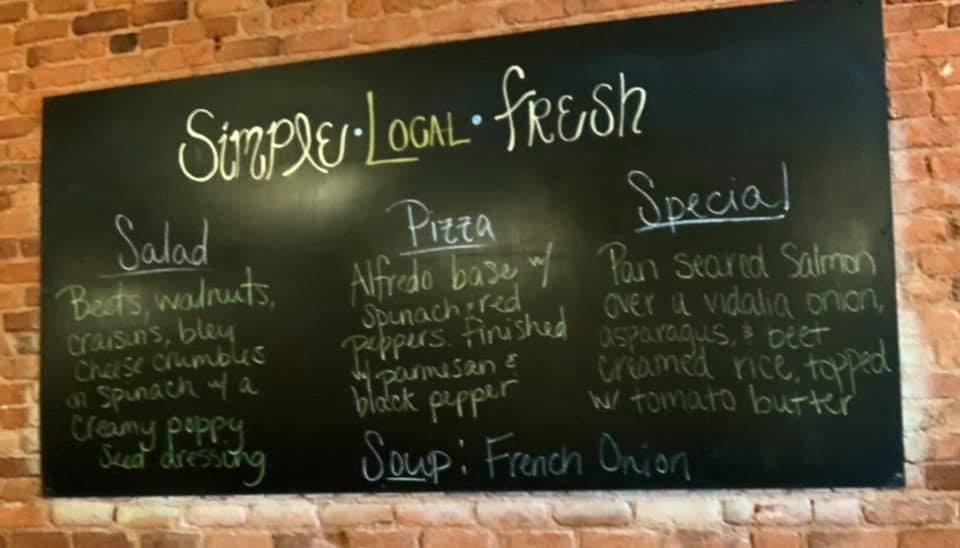 Simple · Local · Fresh
Salad
Beets, walnuts,
craisins, bley
cheese crumbles
on spinach w/ a
creamy poppy
seed dressing
Pizza
Alfredo base w/
spinach & red
peppers. finished
w/ parmesan &
black pepper
Special
Pan seared Salmon
over a vidalia onion,
asparagus, & beet
creamed rice, topped
w/ tomato butter
Soup: French Onion